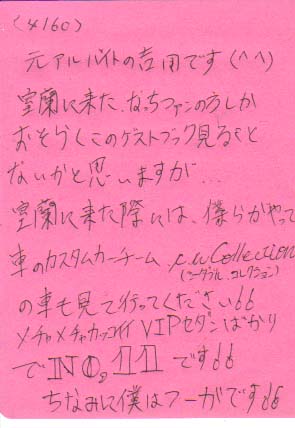 (4160)
元アルバイトの吉田です(^^)
室蘭に来た、なっちファンの方しか
おそらくこのゲストブック見ること
ないかと思いますが...
室蘭に来た際には、僕らがやって
車のカスタムカーチーム Collection
(コレクション)
の車も見て行ってください!!
メチャメチャカッコイイVIPセダンばかり
でNO,11です!!
ちなみに僕はフーガです!!